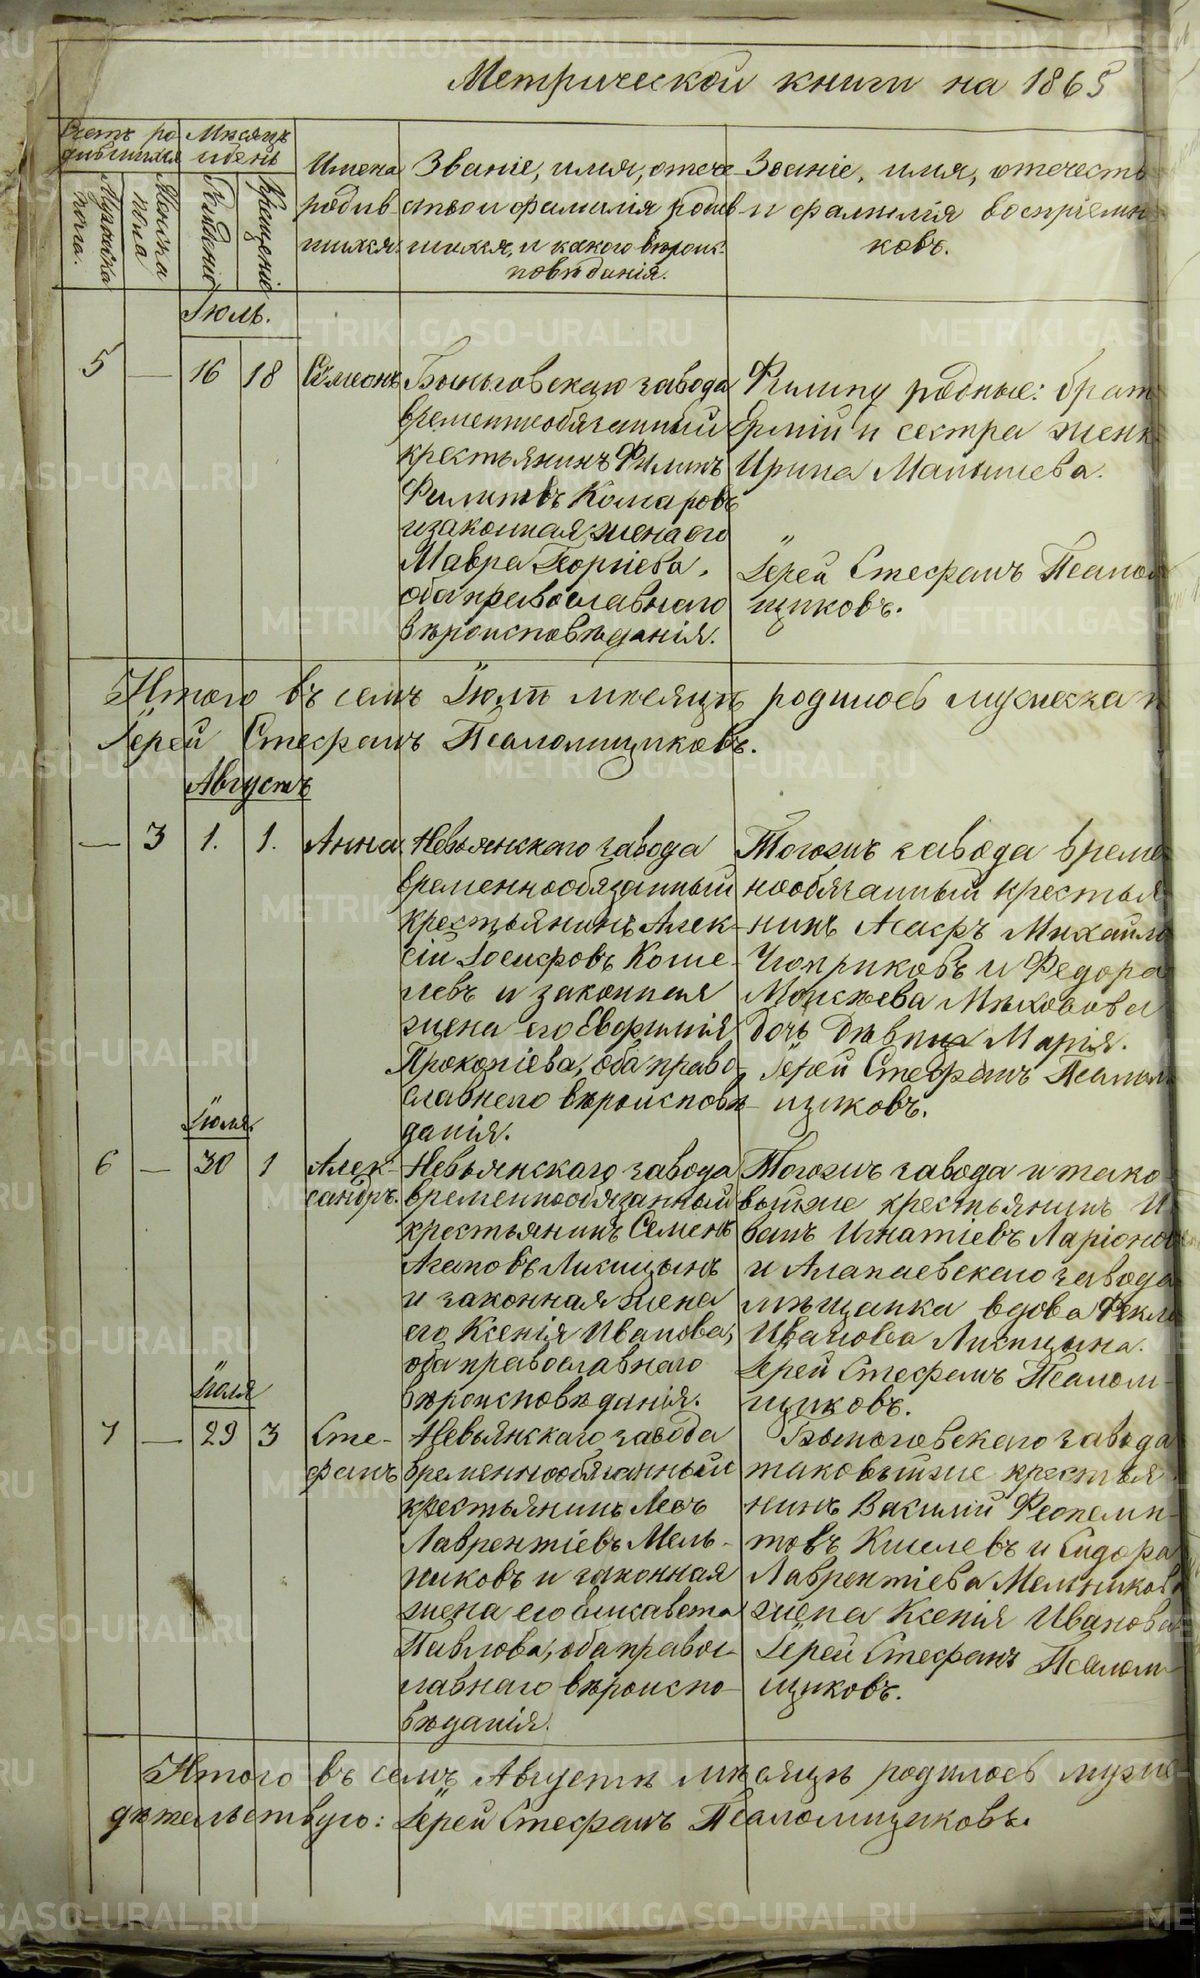 Метрической книги на 1865
Счетъ ро-
дившихся
Мѣсяцъ
и день
Мужеска
пола.
Женска
пола
Рожденіе
Крещеніе
Имена
родив
шихся.
Званіе, имя, отече-
ство и фамилія родив
шихся, и какого вѣроис-
повѣданія.
Званіе, имя, отчеств
и фамилія воспріемн
ковъ.
Іюль.
5 — 16 18 Сѵмеонъ
Быньговскаго завода
временнообязанный
крестьянинъ Филипъ
Филиповъ Комаровъ
и законная жена его
Мавра Георгіева,
оба православнаго
вѣроисповѣданія.
Филипу родные: брат
Ермій и сестра женк
Ирина Малышева.
Іерей Стефанъ Псалом
щиковъ.
Итого въ семъ Іюлѣ мѣсяцѣ родилось мужеска п
Іерей Стефанъ Псаломщиковъ.
Августъ
— 3 1. 1. Анна
Невьянскаго завода
временнообязанный
крестьянинъ Алек-
сій Іосифовъ Коше-
левъ и законная
жена его Евфимія
Прокопіева, оба право-
славнаго вѣроисповѣ-
данія.
Тогожъ завода време
нообязанный крестья
нинъ Агафъ Михайло
Чюприковъ и Федора
Моисѣева Мѣховова
дочь дѣвица Марія.
Іерей Стефанъ Псалом
щиковъ.
Іюля.
6 — 30 1 Алек-
сандръ.
Невьянскаго завода
временнообязанный
крестьянинъ Семенъ
Агаповъ Лисицынъ
и законная жена
его Ксенія Иванова,
оба православнаго
вѣроисповѣданія.
Тогожъ завода и тако-
выйже крестьянинъ И
ванъ Игнатіевъ Ларіонов
и Алапаевскаго завода
мѣщанка вдова Фекла
Иванова Лисицына.
Іерей Стефанъ Псалом-
щиковъ.
Іюля
7 — 29 3 Сте-
фанъ
Невьянскаго завода
временнообязанный
крестьянинъ Левъ
Лаврентіевъ Мель-
никовъ и законная
жена его Елисавета
Павлова, оба правос-
лавнаго вѣроиспо-
вѣданія.
Быньговскаго завода
таковыйже крестья
нинъ Василій Феопемп-
товъ Киселевъ и Сидора
Лаврентіева Мельников
жена Ксенія Иванова
Іерей Стефанъ Псалом-
щиковъ.
Итого въ семъ Августѣ мѣсяцѣ родилось муже
дѣтельствую: Іерей Стефанъ Псаломщиковъ.
METRIKI.GASO-URAL.RU